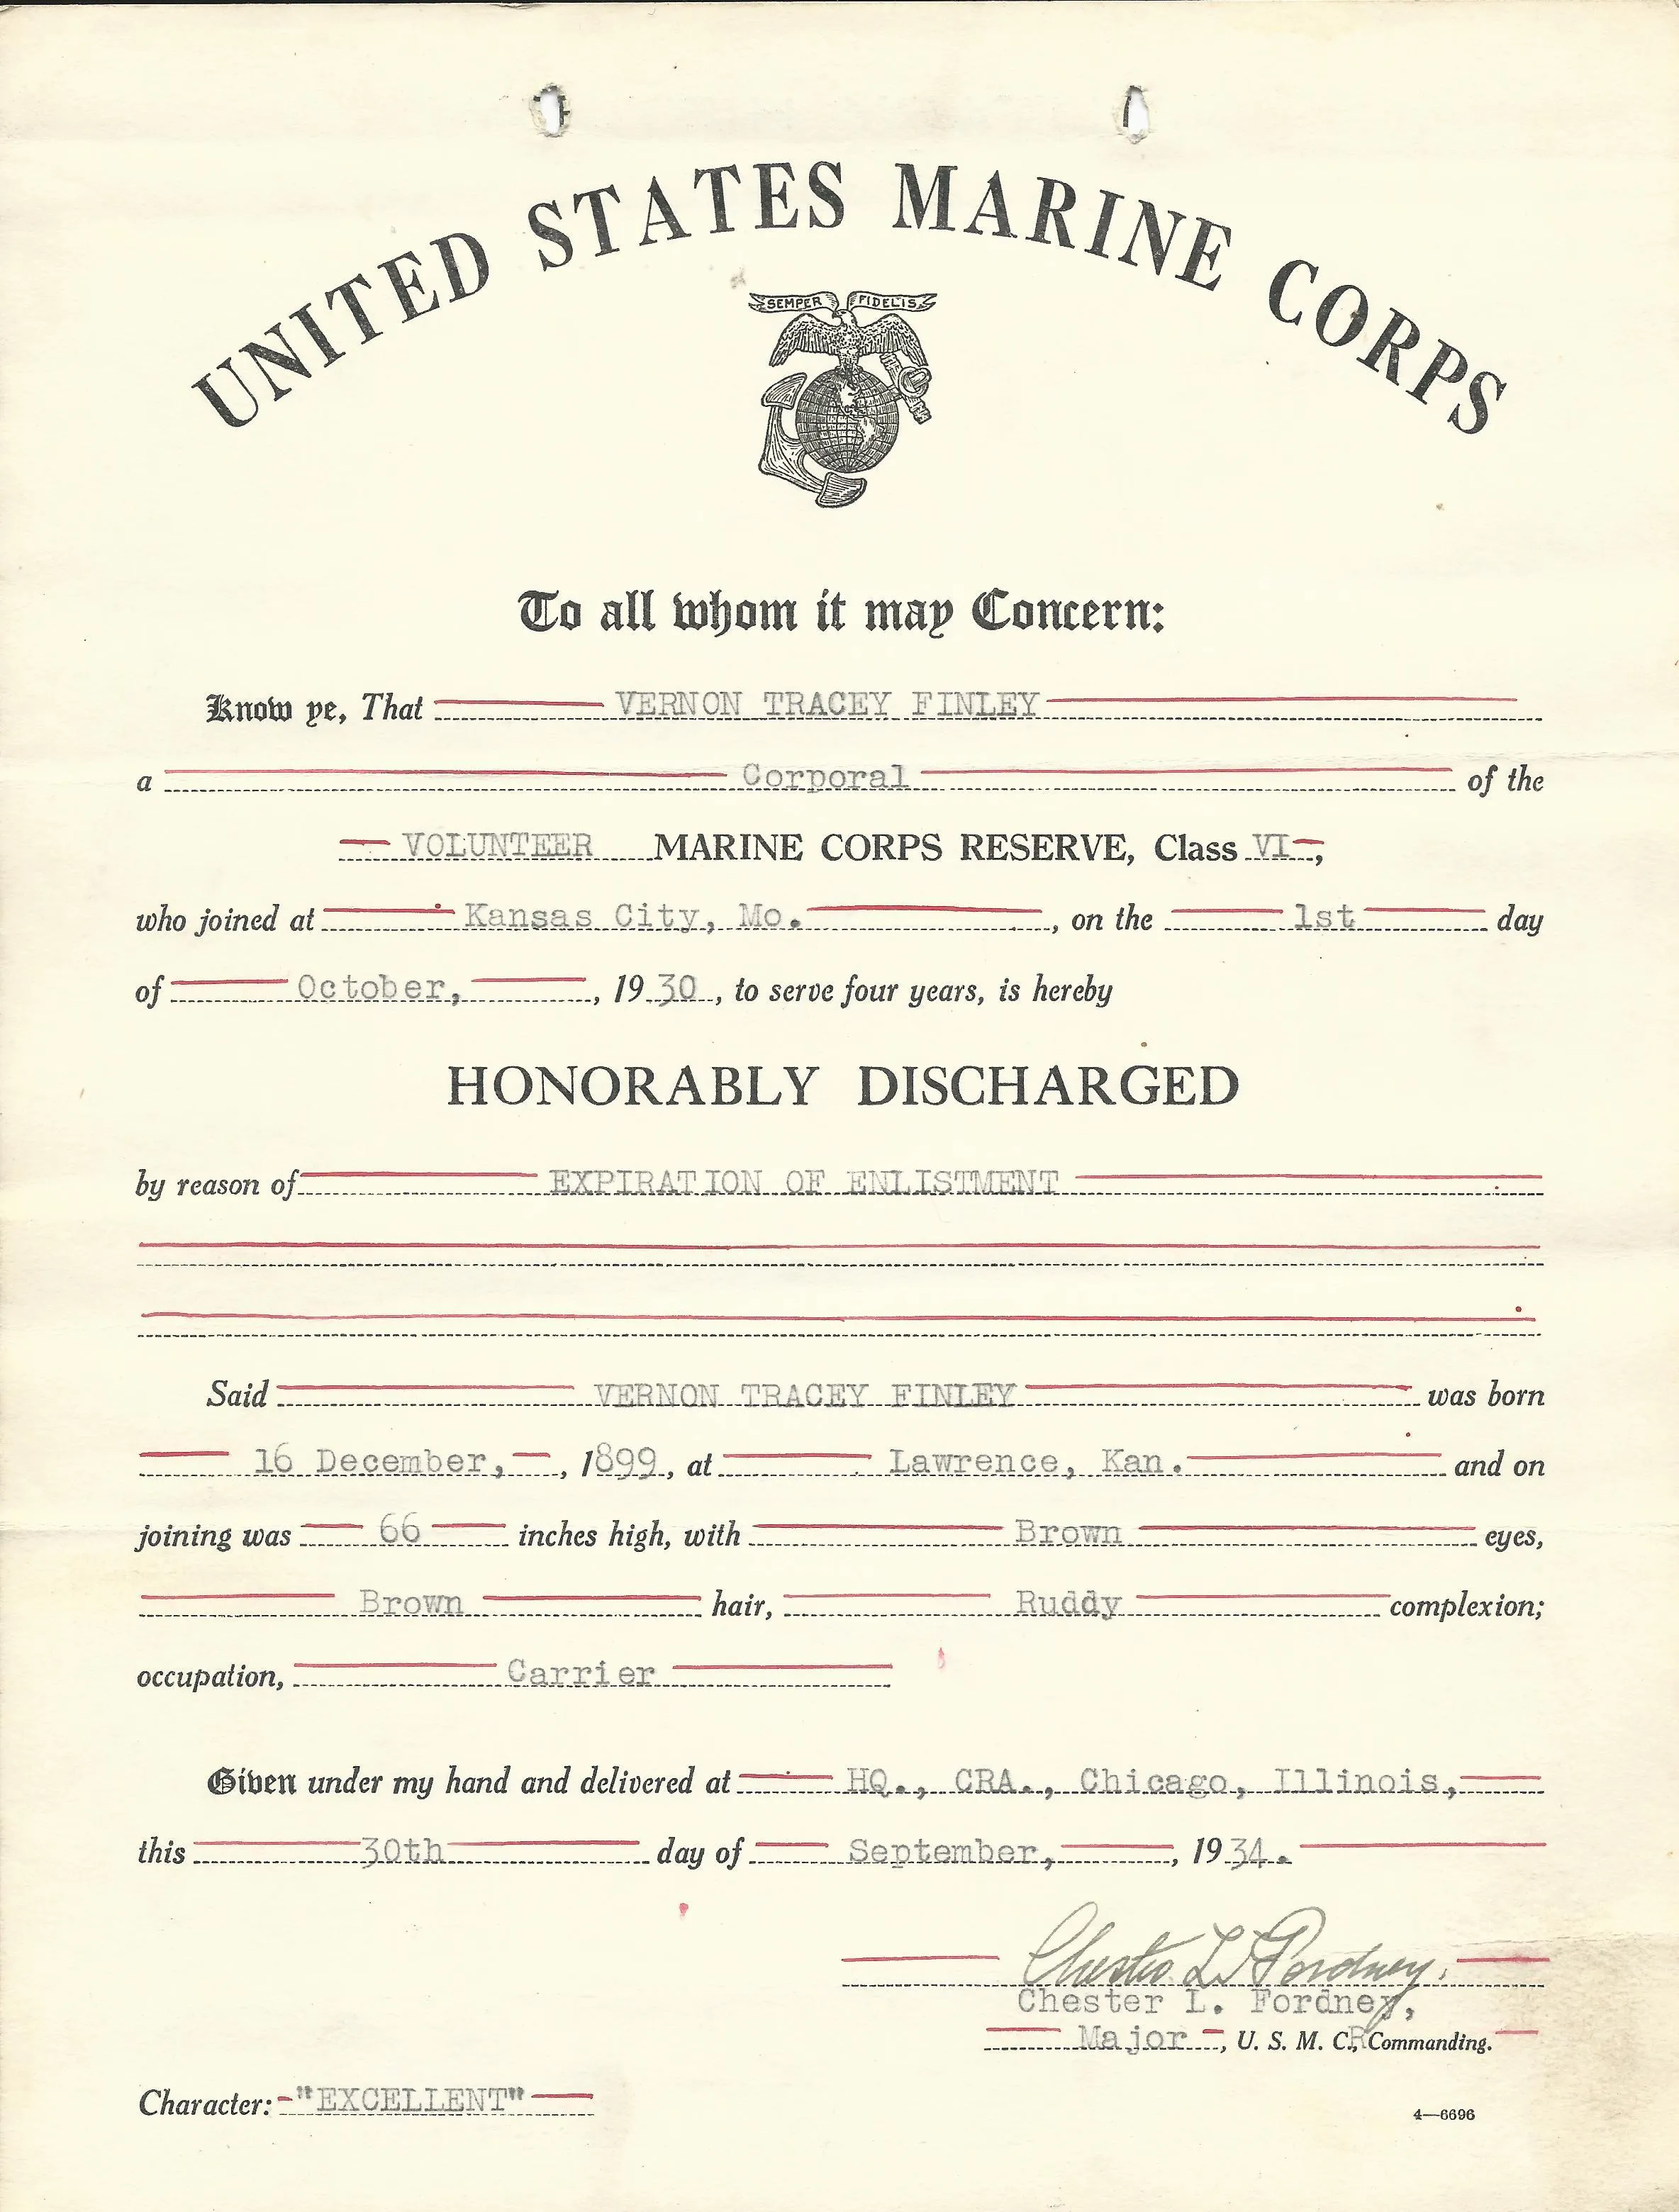 UNITED STATES MARINE CORPS
SEMPER FIDELIS
To all whom it may Concern:
Know ye, That VERNON TRACEY FINLEY
a Corporal of the
VOLUNTEER MARINE CORPS RESERVE, Class VI,
who joined at Kansas City, Mo. , on the 1st day
of October, , 1930, to serve four years, is hereby
HONORABLY DISCHARGED
by reason of EXPIRATION OF ENLISTMENT
Said VERNON TRACEY FINLEY was born
16 December, , 1899, at Lawrence, Kan. and on
joining was 66 inches high, with Brown eyes,
Brown hair, Ruddy complexion;
occupation, Carrier
Given under my hand and delivered at HQ., CRA., Chicago, Illinois,
this 30th day of September, , 1934.
Chester L. Fordney.
Chester L. Fordney,
Major , U. S. M. C.R, Commanding.
Character: "EXCELLENT"
4—6696